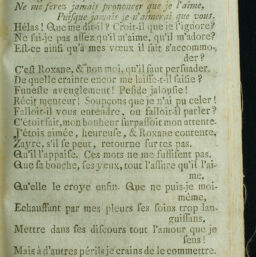 Ne me ferez jamais prononcer que je l'aime,
Puisque jamais je n'aimerai que vous.
Hélas! Que me dit-il? Croit-il que je l'ignore?
Ne sai-je pas assez qu'il m'aime, qu'il m'adore?
Est-ce ainsi qu'à mes vœux il sait s'accommo-
der?
C'est Roxane, & non moi, qu'il faut persuader.
De quelle crainte encor me laisse-t-il saisie?
Funeste aveuglement! Perfide jalousie!
Récit menteur! Soupçons que je n'ai pu celer!
Falloit-il vous entendre, ou falloit-il parler?
C'étoit fait, mon bonheur surpassoit mon attente.
J'étois aimée, heureuse, & Roxane contente.
Zayre, s'il se peut, retourne sur tes pas.
Qu'il l'appaise. Ces mots ne me suffisent pas.
Que sa bouche, ses yeux, tout l'assure qu'il l'ai-
me.
Qu'elle le croye enfin. Que ne puis-je moi-
même,
Echauffant par mes pleurs ses soins trop lan-
guissans,
Mettre dans ses discours tout l'amour que je
sens!
Mais à d'autres périls je crains de le commettre.